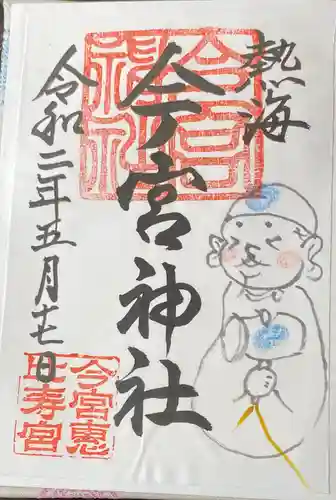 熱海
今宮神社
令和二年五月廿七日
今宮神社
今宮恵比寿宮